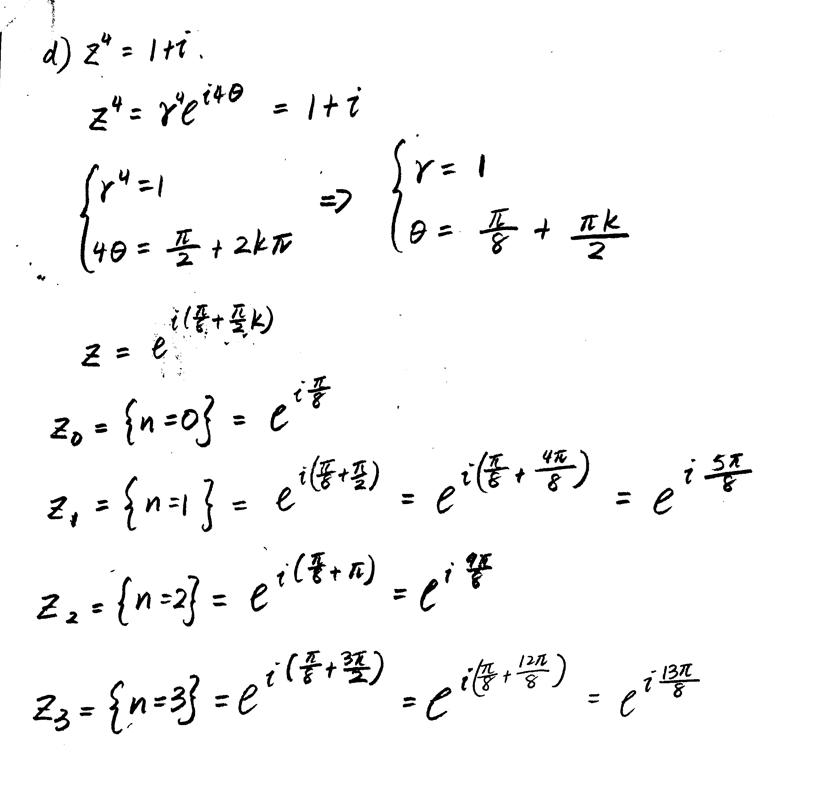 d) z⁴ = 1+i.
z⁴ = r⁴e^{i4θ} = 1+i
{ r⁴ = 1 ⇒ { r = 1
{ 4θ = π/2 + 2kπ { θ = π/8 + πk/2
z = e^{i(π/8 + π/2 k)}
z₀ = {n=0} = e^{i π/8}
z₁ = {n=1} = e^{i(π/8 + π/2)} = e^{i(π/8 + 4π/8)} = e^{i 5π/8}
z₂ = {n=2} = e^{i(π/8 + π)} = e^{i 9π/8}
z₃ = {n=3} = e^{i(π/8 + 3π/2)} = e^{i(π/8 + 12π/8)} = e^{i 13π/8}